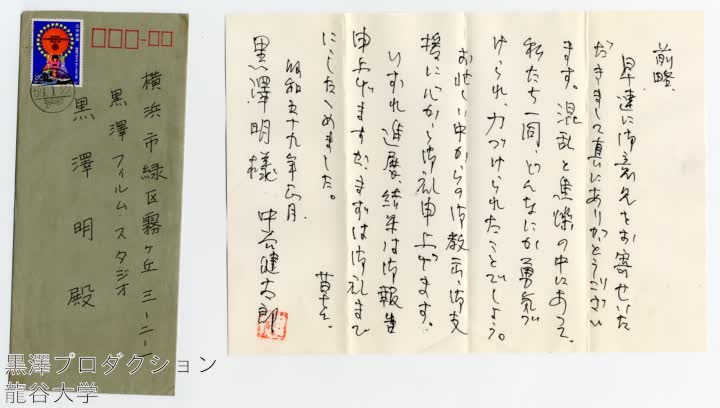 横浜市緑区霧ヶ丘三ー二ー一
黒澤フィルム・スタジオ
黒澤明殿
前略
早速に御意見をお寄せいた
だきまして真にありがとうござい
ます。混乱と焦燥の中にあって、
私たち一同、どんなにか勇気づ
けられ力づけられたことでしょう。
お忙しい中からの御教示、御支
援に心から御礼申上げます。
いずれ進展結果は御報告
申上げますが、まずは御礼まで
に、したためました。
草々
昭和五十九年正月
中谷健太郎
黒澤明様
黒澤プロダクション
龍谷大学